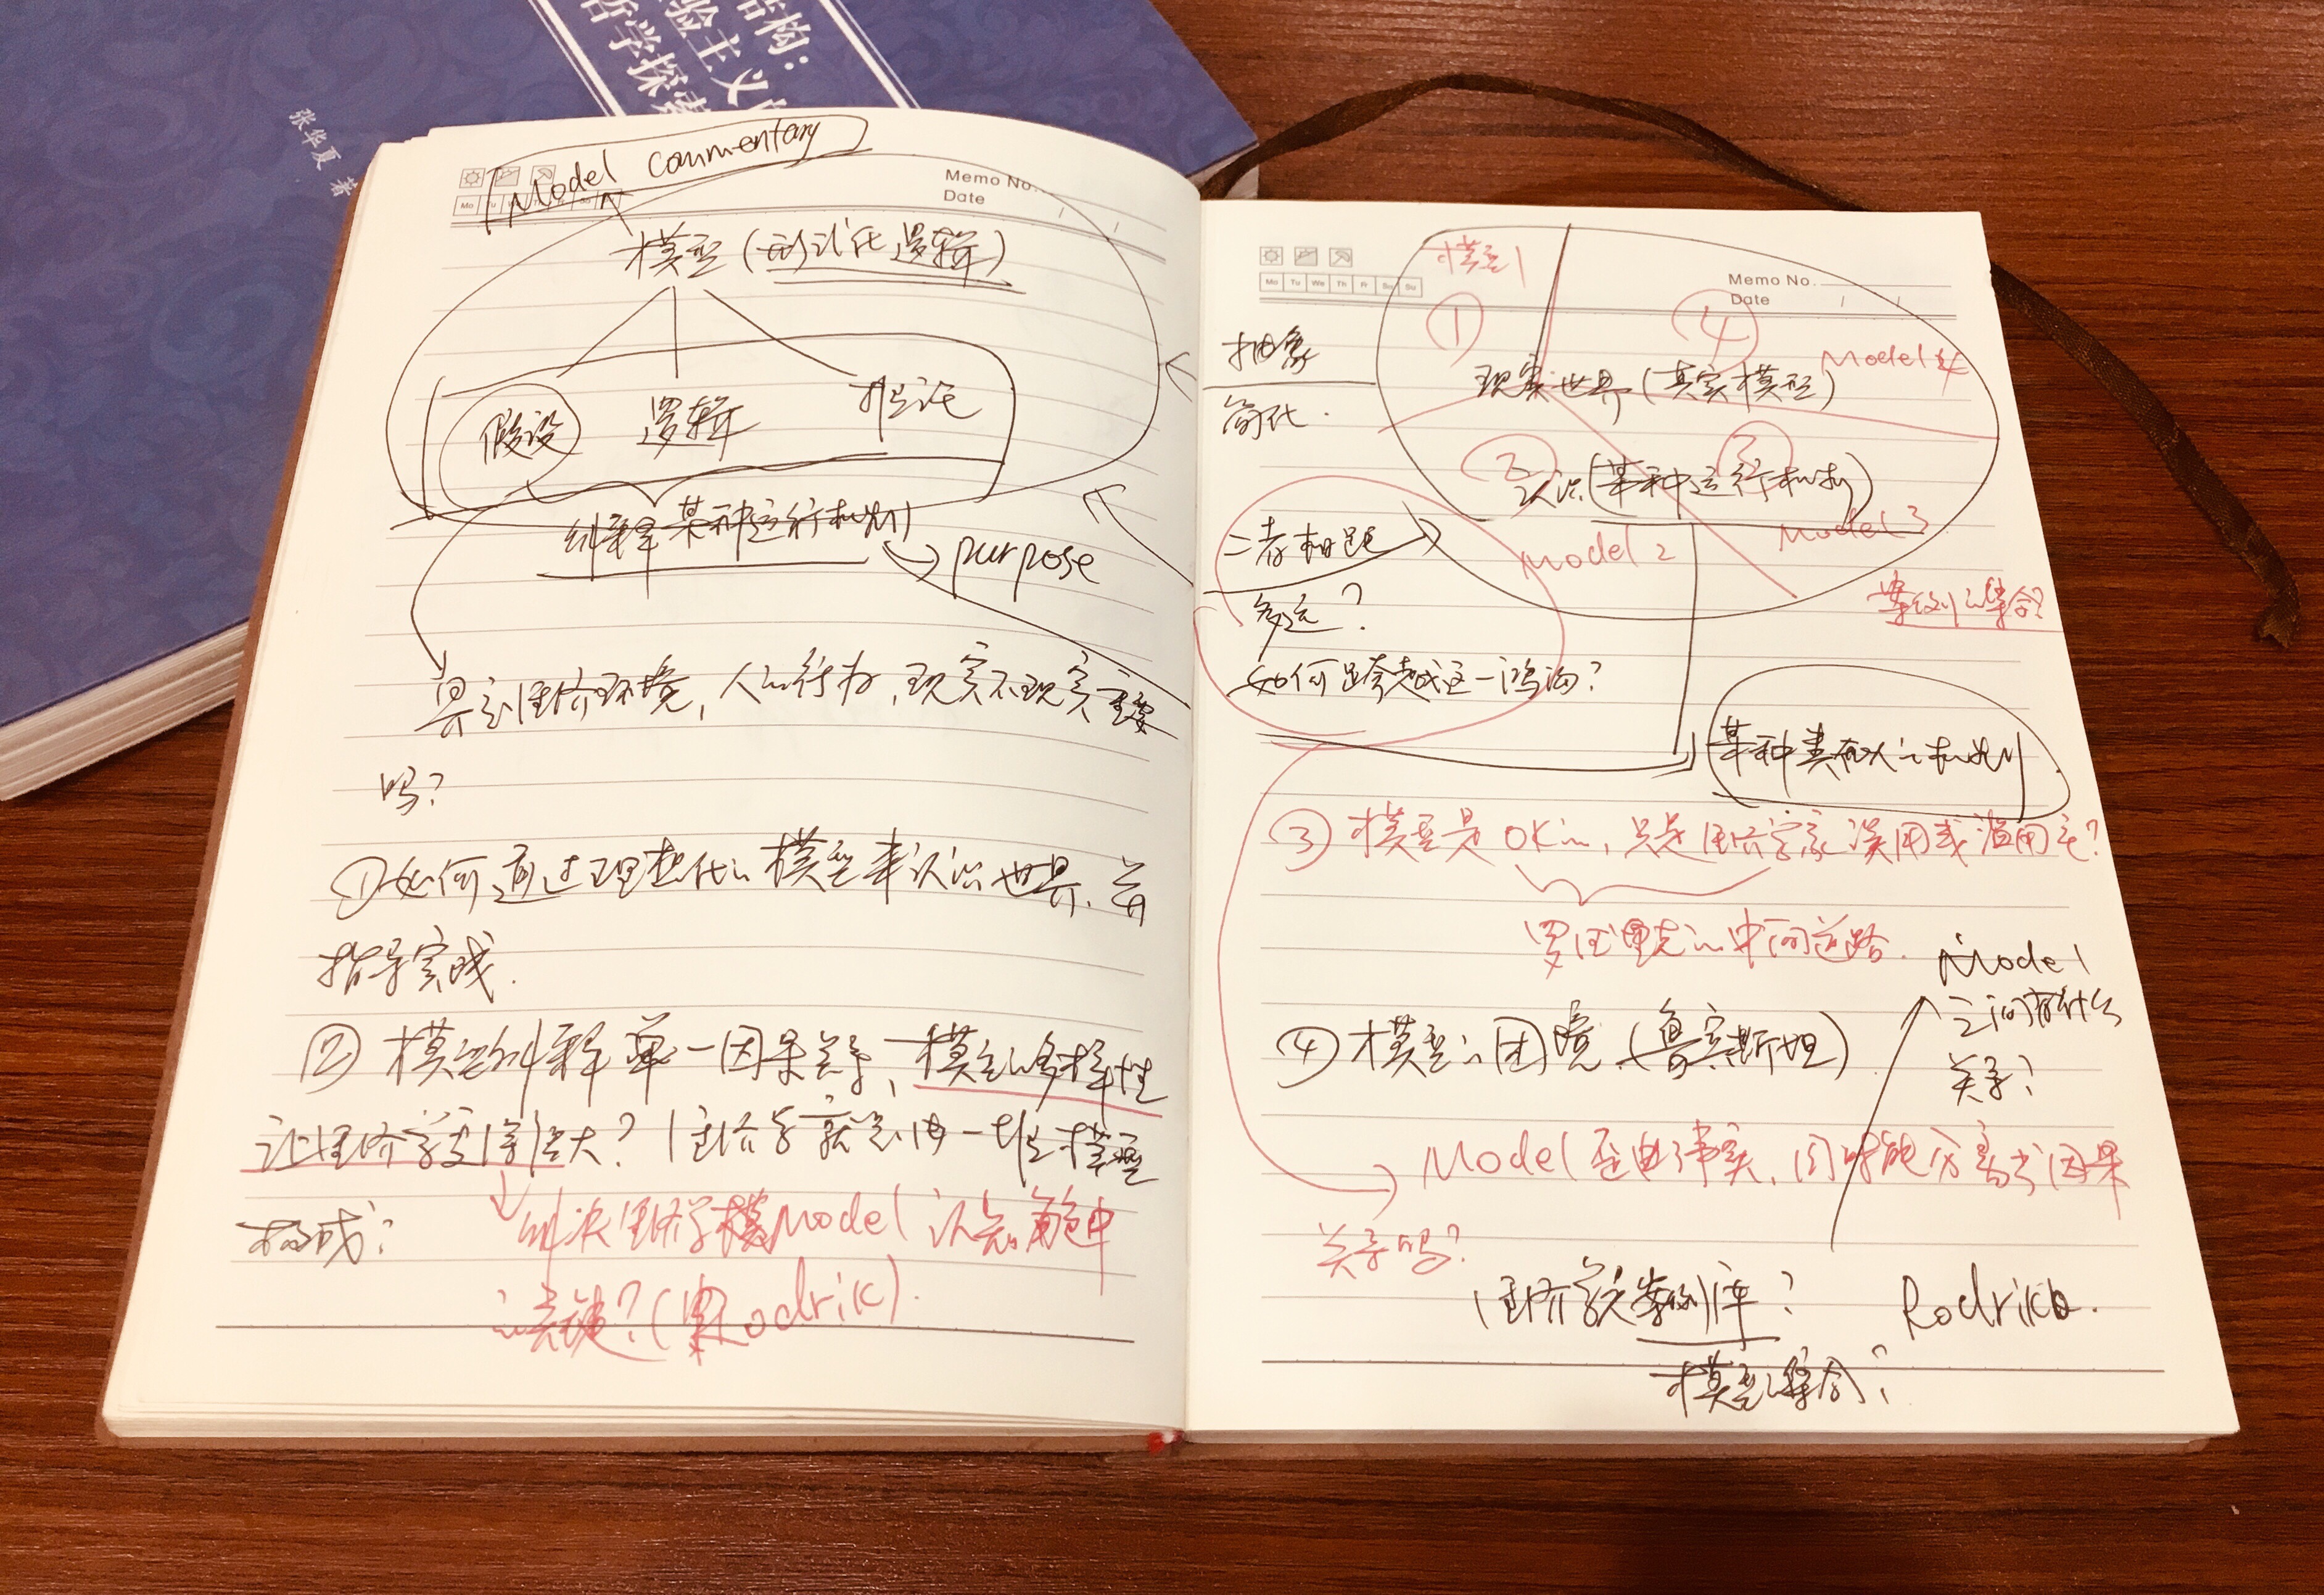 结构:
验主义
哲学探索
张华夏 著
Model commentary
Memo No.
Date
Mo Tu
模型(形式化逻辑)
假设 逻辑 推论
解释某种运行机制
purpose
界定经济环境,人的行为,现实不现实重要
吗?
①如何通过理想化的模型来认识世界、并
指导实践.
②模型解释单一因果关系,模型的多样性
让经济学变得强大?经济学就是由一堆模型
构成?
解决经济学模Model认知角色中
的关键?(Rodrik).
Mo Tu We Th Fr Sa Su
Memo No.
Date
模型1
① ④
Model 4
抽象
简化.
现实世界(真实模型)
② ③
认识(某种运行机制)
Model 2
Model 3
案例的集合?
二者相距
多远?
如何跨越这一鸿沟?
某种类似的机制
③模型是OK的,只是经济学家误用或滥用它?
罗德里克的中间道路.
Model
之间有什么
关系?
④模型的困境(鲁宾斯坦)
Model歪曲事实,同时能分离出因果
关系吗?
经济学案例库?
Rodrik.
模型的集合?